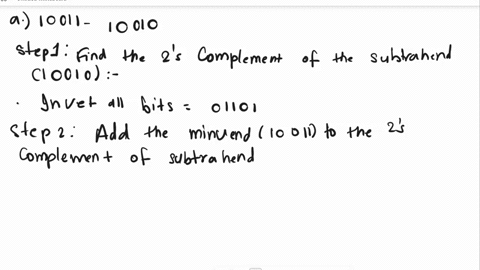 a.) 10011 - 10010
Step1: Find the 2's Complement of the subtrahend
(10010) :-
. Invet all bits = 01101
Step 2: Add the minuend (10 011) to the 2's
Complement of subtrahend